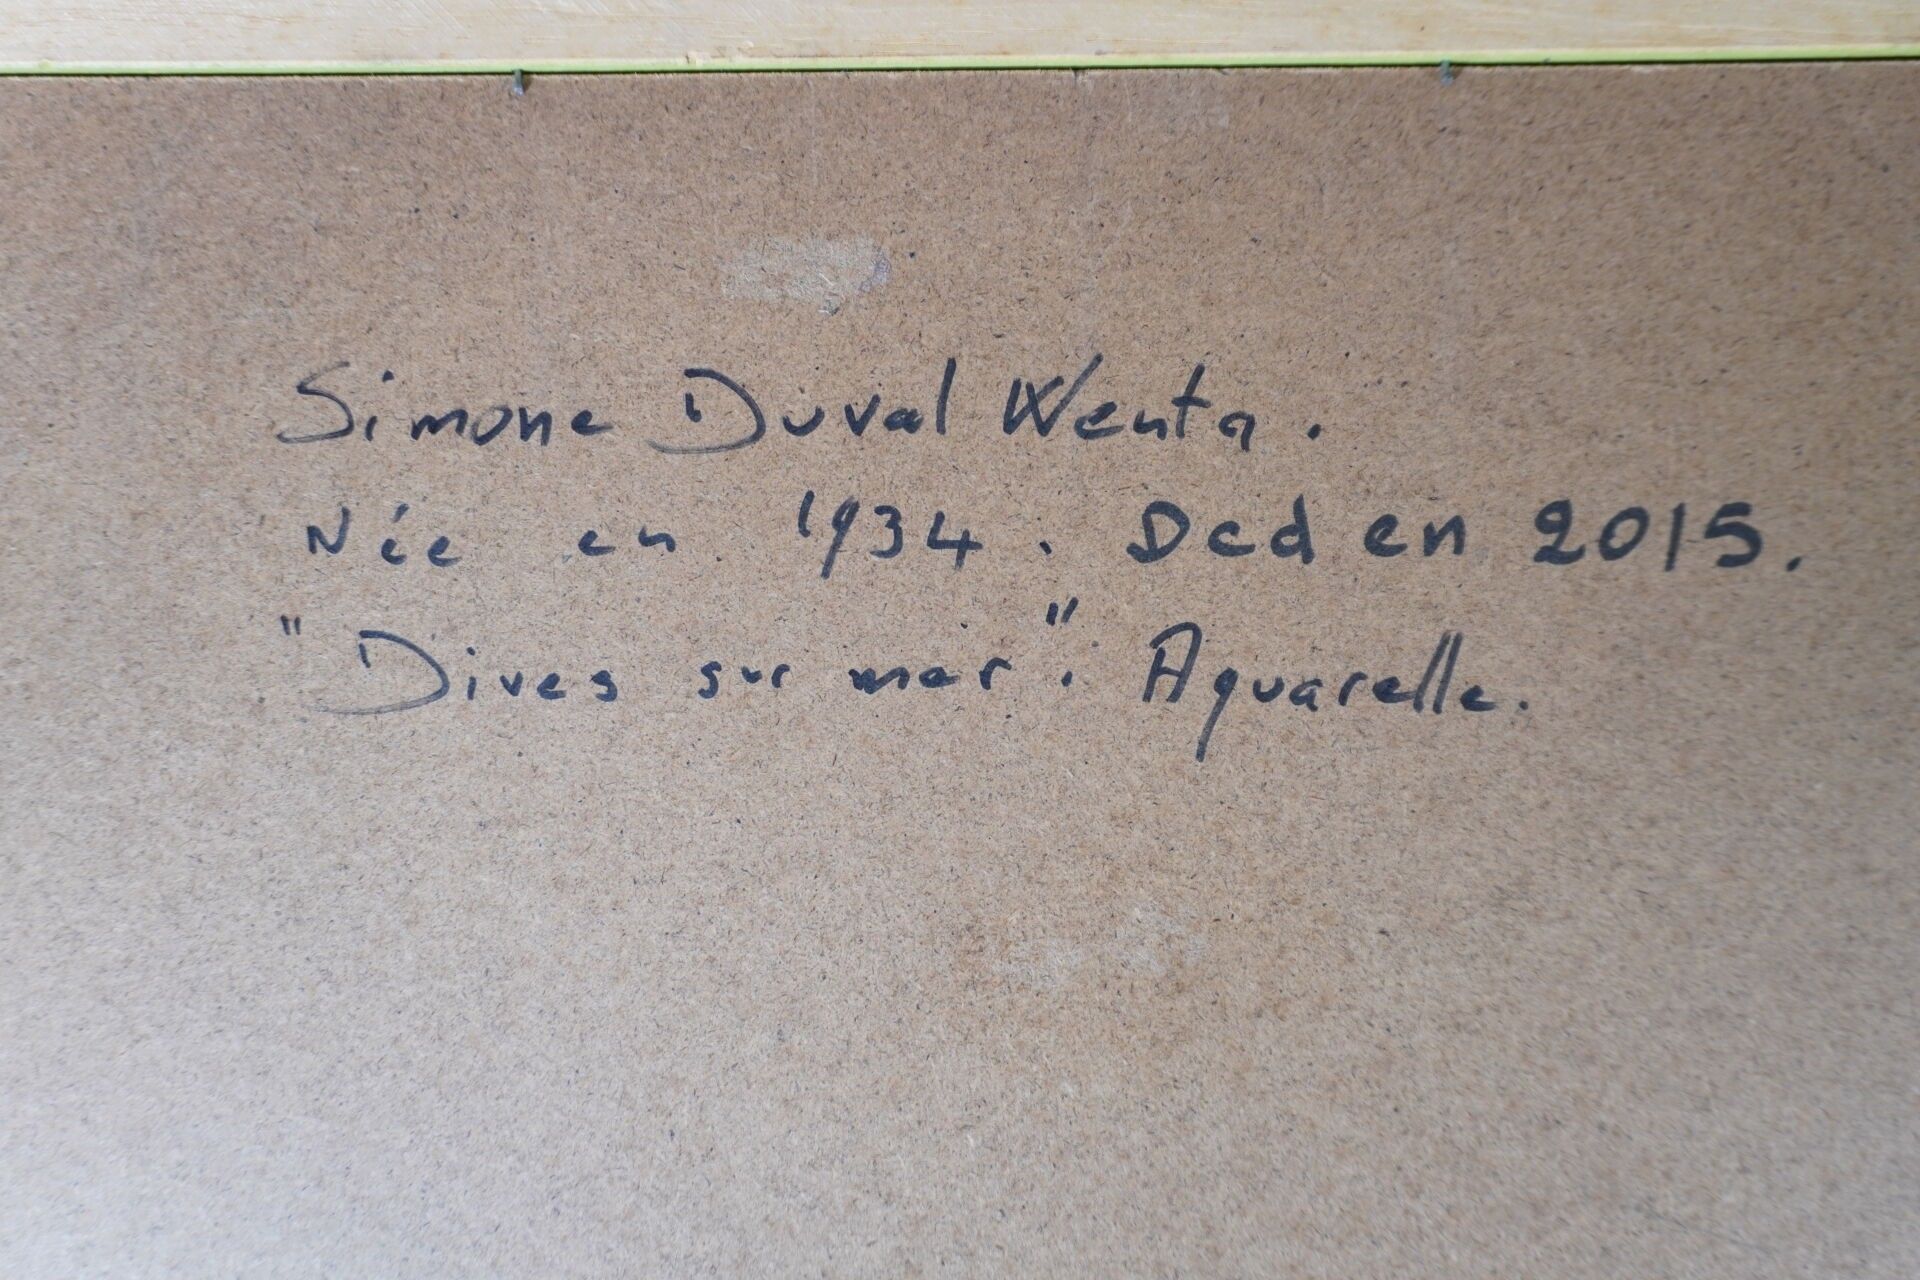 Simone Duval Wenta.
Née en 1934. Ded en 2015.
"Dives sur mer". Aquarelle.